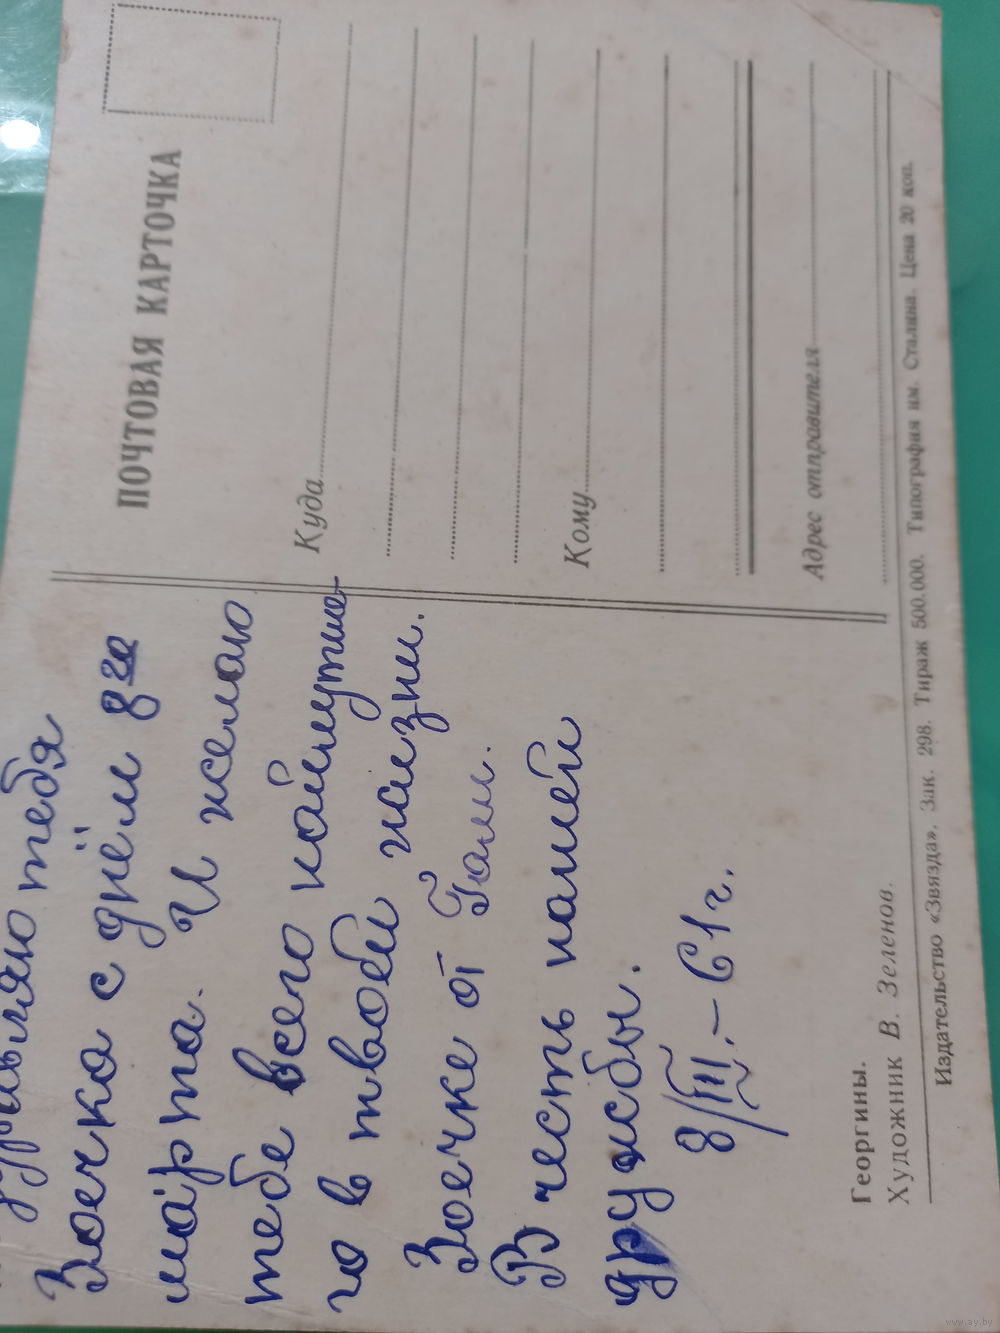 тебя
Зоечка с днём 8го
марта. И желаю
тебе всего найлутше-
го в твоей жизни.
Зоечке от Гали.
В честь нашей
дружбы.
8/III.-61г.
Георгины.
Художник В. Зеленов.
ПОЧТОВАЯ КАРТОЧКА
Куда
Кому
Адрес отправителя
Издательство «Звязда». Зак. 298. Тираж 500.000. Типография им. Сталина. Цена 20 коп.
www.ay.by